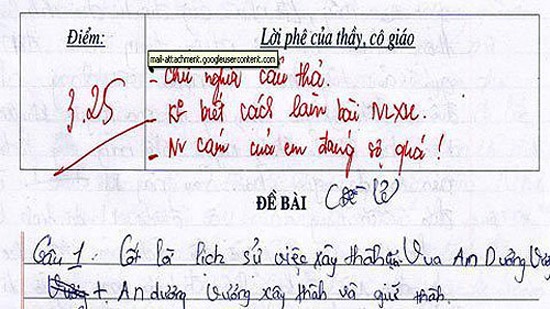 Điểm:
Lời phê của thầy, cô giáo
mail-attachment.googleusercontent.com
3,25
- Chữ nghĩa cẩu thả.
- Ko biết cách làm bài NLXH.
- NV cám của em đáng sợ quá!
ĐỀ BÀI
Câu 1. Cốt lõi lịch sử việc xây thành, Vua An Dương
+ An dương Vương xây thành và giữ thành.